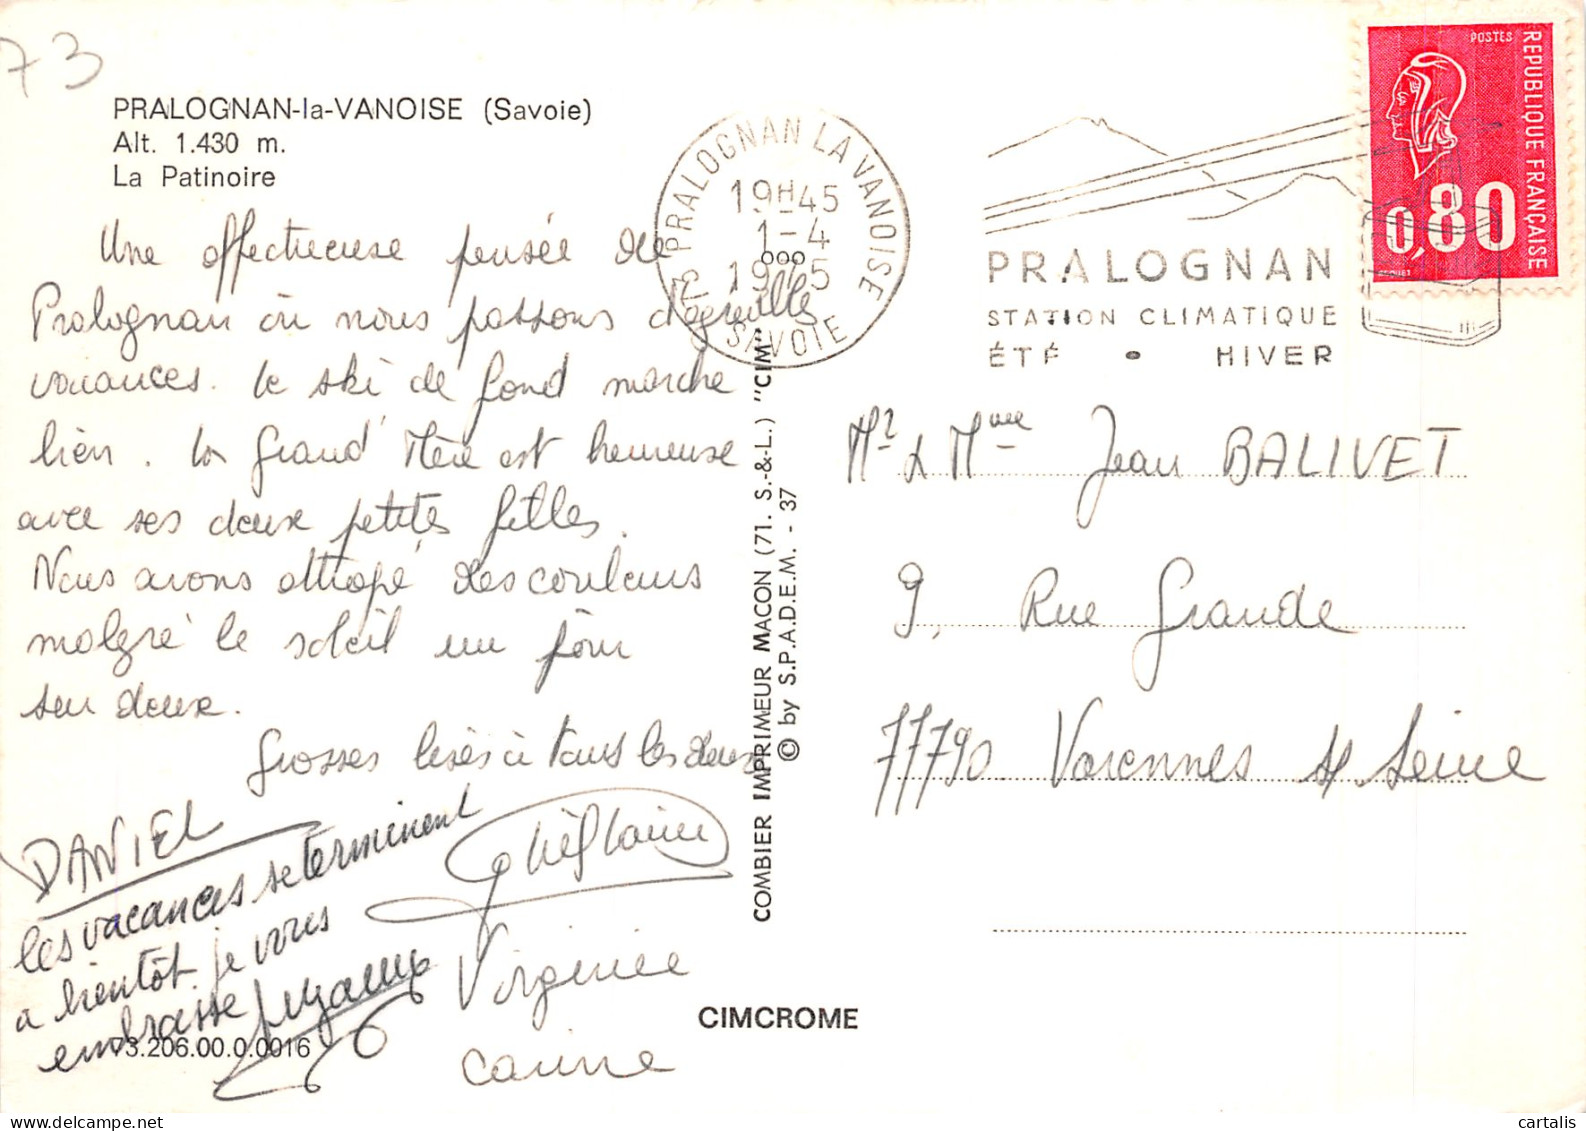 73
PRALOGNAN-la-VANOISE (Savoie)
Alt. 1.430 m.
La Patinoire
Une affectueuse pensée de
Pralognan où nous passons d'agréables
vacances. Le ski de fond marche
bien. La Grand'Mère est heureuse
avec ses deux petites filles.
Nous avons attrapé des couleurs
malgré le soleil un jour
sur deux.
Grosses bises à tous les deux
DANIEL
Ghislaine
les vacances se terminent
a bientôt. je vous
embrasse
Virginie
Carine
73.206.00.0.0016
CIMCROME
COMBIER IMPRIMEUR MACON (71. S.-&-L.) "CIM"
© by S.P.A.D.E.M. - 37
73 PRALOGNAN LA VANOISE
19H45
1-4
1975
SAVOIE
PRALOGNAN
STATION CLIMATIQUE
ÉTÉ • HIVER
POSTES
REPUBLIQUE FRANÇAISE
0,80
Mr & Mme Jean BALIVET
9, Rue Grande
77790 Varennes s/ Seine
cartalis